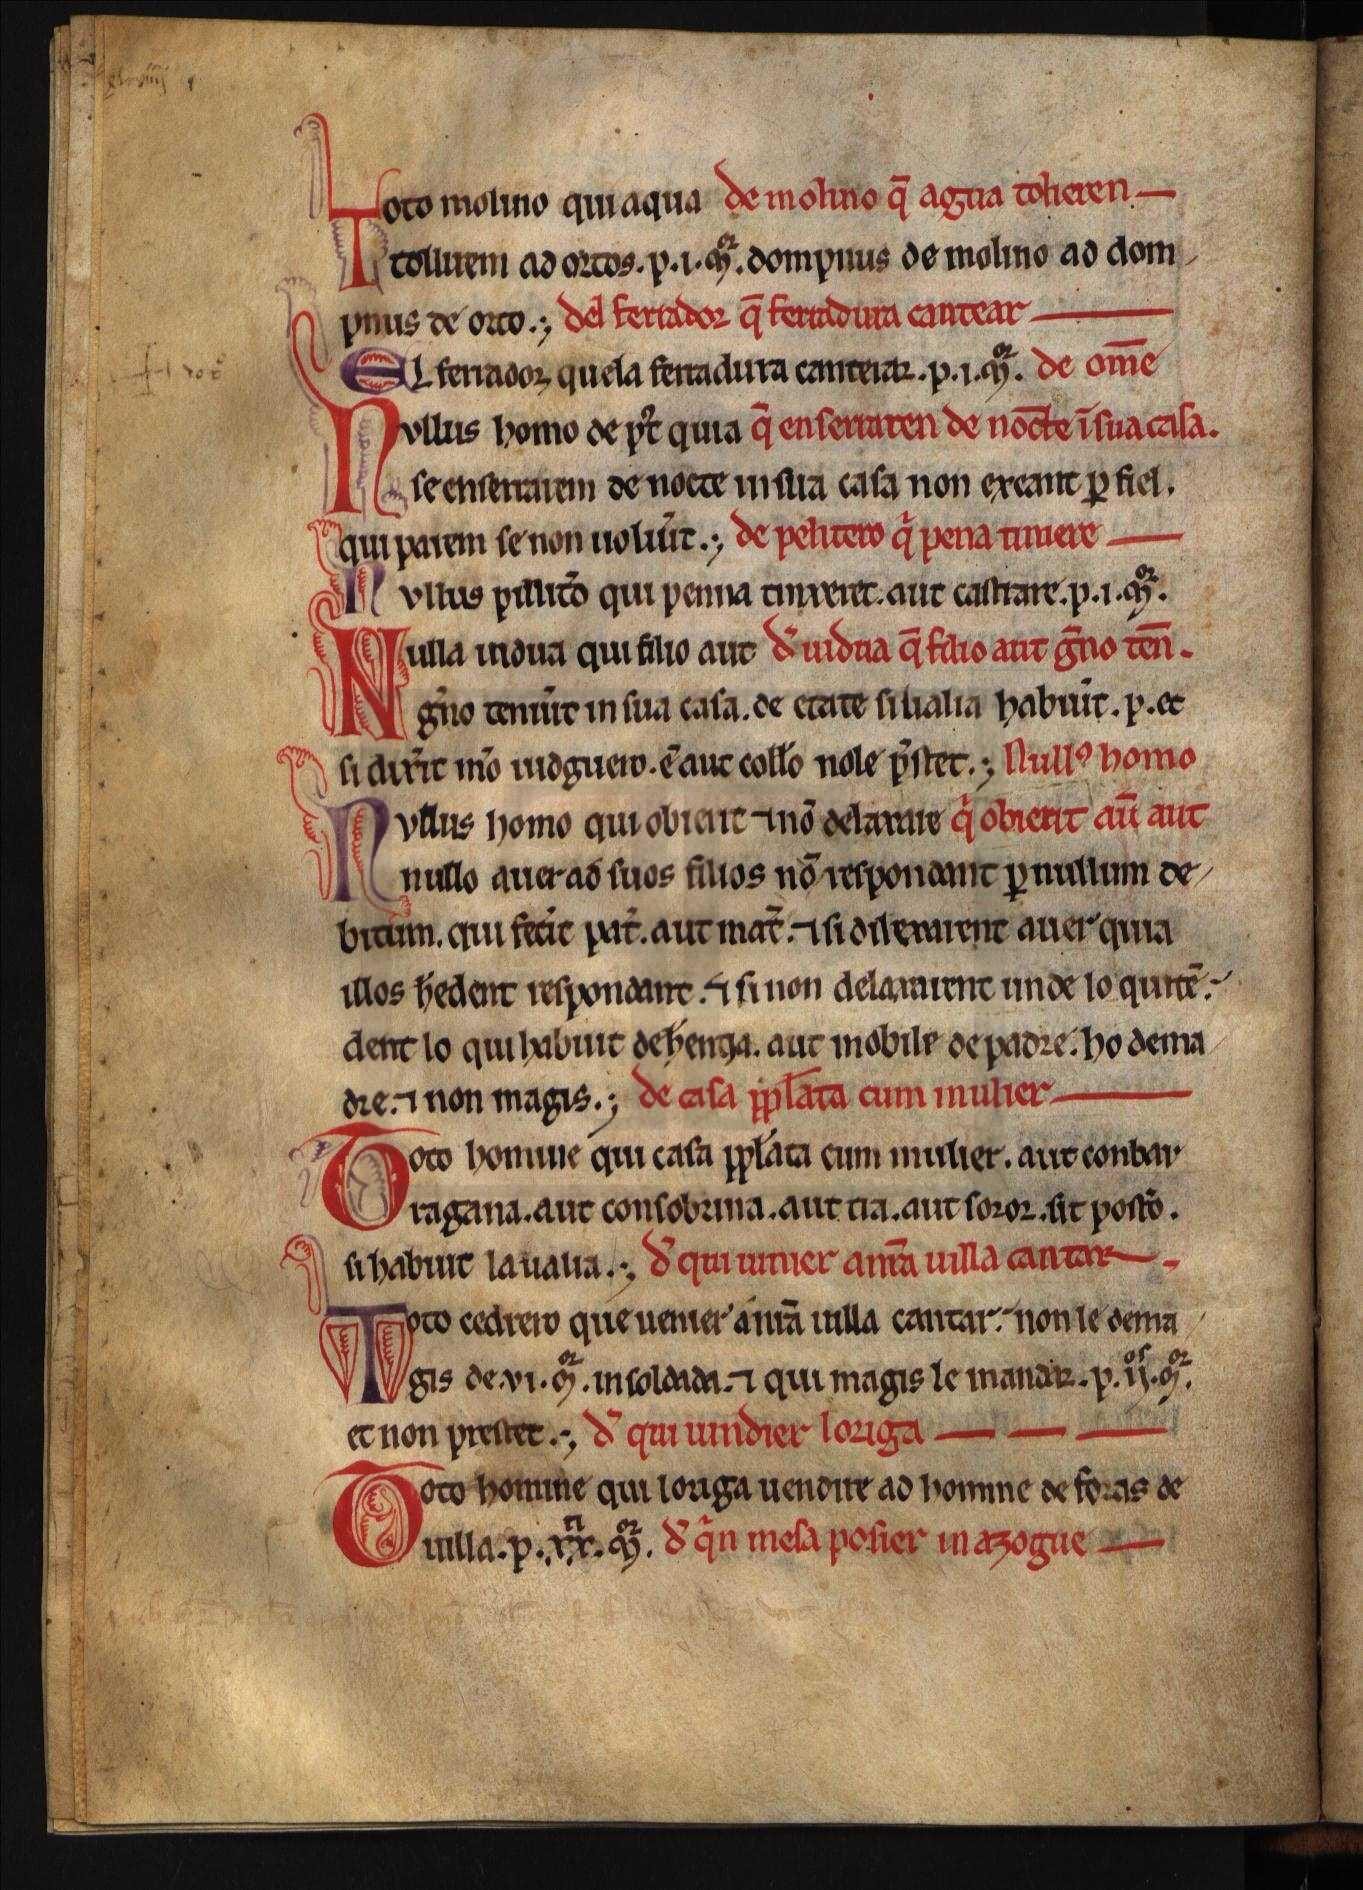 Toto molino qui aqua de molino q̄ agua tolieren
tolluerit ad ortos. p. i. mͬ. dompnus de molino ad dom
pnus de orto.; del ferrador q̄ ferradura cantear
El ferrador, que la ferradura canteiar. p. i. mͬ. de om̄e
Nvllus homo de p̃t quia q̄ enserraren de nocte ī sua casa.
se enserrarem de nocte in sua casa non exeant p̱ fiel.
qui parem se non uolũt.; de pelitero q̄ pena tiniere
Nvllus pillito qui penna tinxeret. aut castrare. p. i. mͬ.
Nulla uidua qui filio aut d' uidua q̄ filio aut g̃no ten̄.
g̃no tenũit in sua casa. de etate si lialia habũit. p. et
si dix̃it m̃o uidguero. ē aut coll'o nole p̃stet.; Nullꝰ homo
Nvllus homo qui obierit ⁊ nō delaxare q̇ obierit aū aut
nullo auer ad suos filios nō respondant p̱ nullum de
bitum. qui fec̃it pat̃. aut mat̃. ⁊ si dilexarent auer quia
illos h̃edent respondant. ⁊ si non delaxarent unde lo quitē.
dent lo qui habuit de h̃entia. aut mobile de padre. ho de ma
dre. ⁊ non magis.; de casa pp̄lata cum mulier
Toto homine qui casa pp̄lata cum mulier. aut con bar
ragana. aut consobrina. aut tia. aut soror. sit post̃o.
si habuit la ualia.; d' qui uinier ani͞a uilla cantar
Toto cedrero que uenier a ni͞a uilla cantar. non le dema
gis de. vi. mͬ. in soldada. ⁊ qui magis le mandar. p. ii. mͬ.
et non prestet.; d' qui uindier loriga
Toto homine qui loriga uendire ad homine de foras de
uilla. p. xx. mͬ. d' q̇n mesa posier in azogue